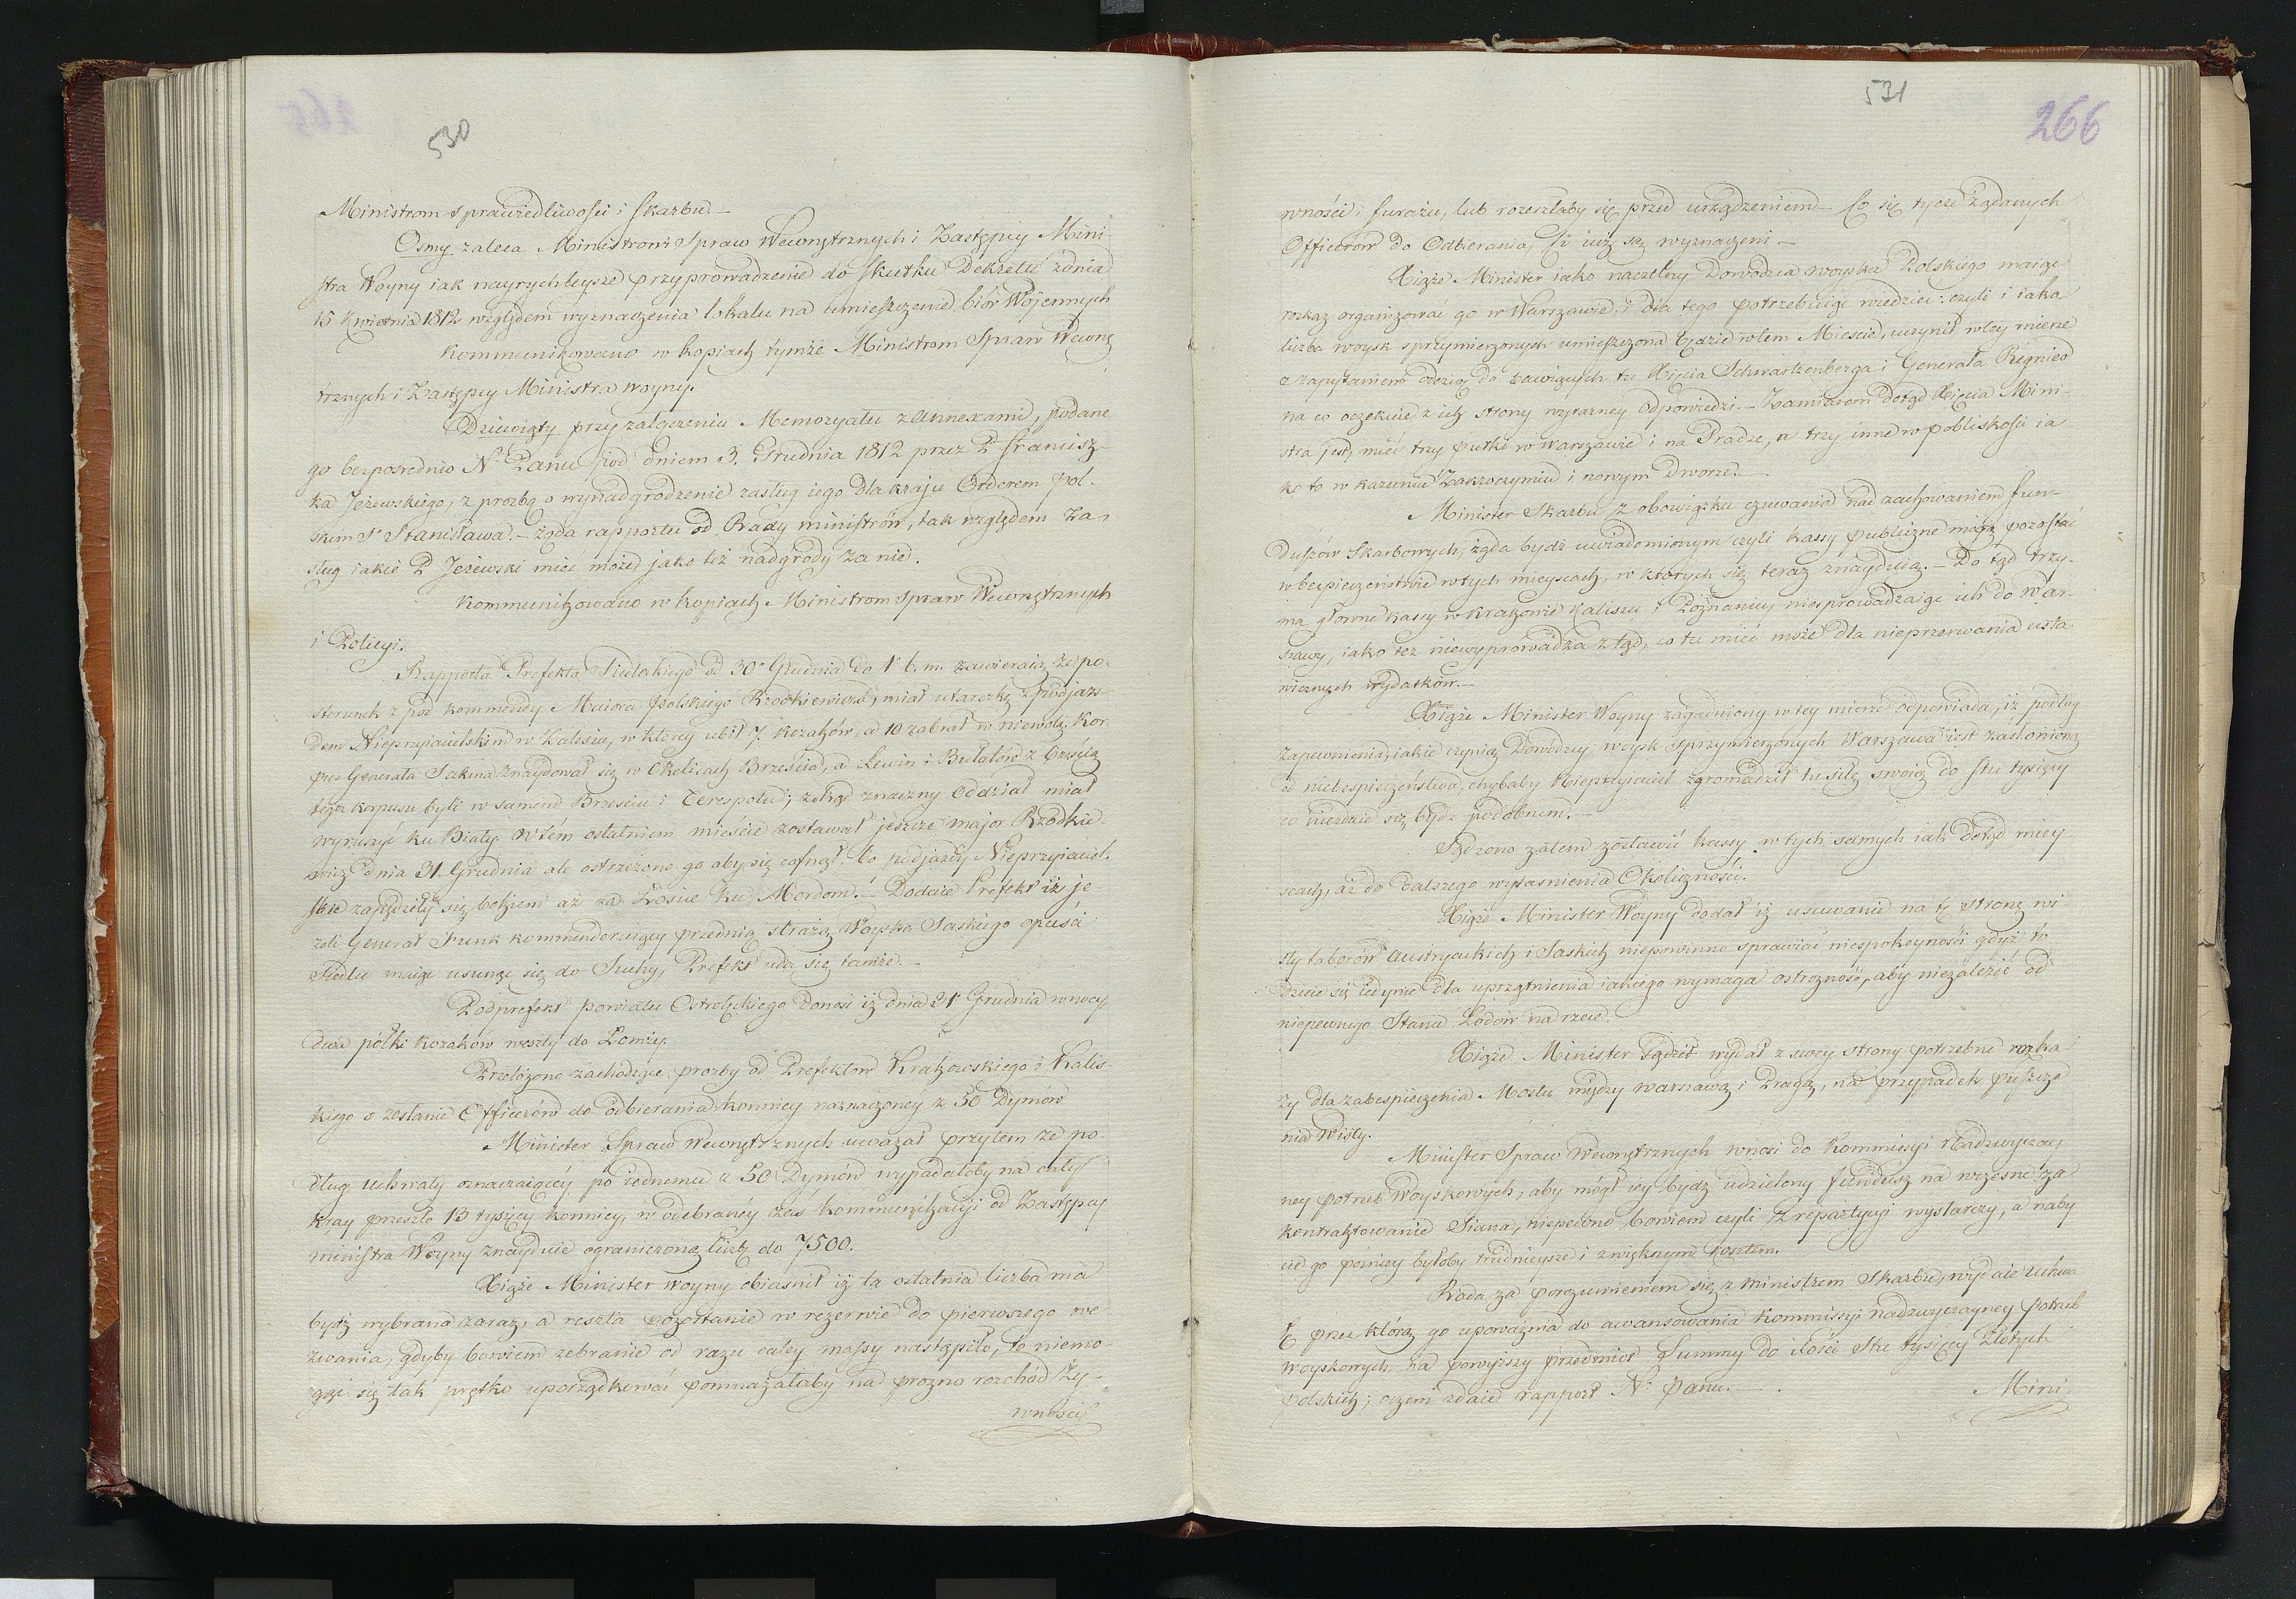 530
Ministrom sprawiedliwości i skarbu. —
Osmy zaleca Ministrowi Spraw Wewnętrznych i Zastępcy Mini
stra Woyny iak nayrychleysze przyprowadzenie do skutku Dekretu zdnia
15 Kwietnia 1812 względem wyznaczenia lokalu na umieszczenie biór Wojennych
Kommunikowano w kopiach tymże Ministrom Spraw Wewnę
trznych i Zastępcy Ministra woyny.
Dziewiąty przy załączeniu Memoryału z annexami, podane
go bezpośrednio N. Panu pod dniem 3. Grudnia 1812 przez P. Francisz
ka Jeżewskiego, z prozbą o wynadgrodzenie zasług iego dla kraju Orderem pol-
skim Sº Stanisława. — żąda rapportu od Rady ministrów, tak względem Za-
sług iakie P Jeżewski mieć może jako też nadgrody za nie.
Kommunikowano w kopiach Ministrom spraw Wewnętrznych
i Policyi.
Rapporta Prefekta Siedleckiego od 30º Grudnia do 1º b. m. zawieraią, że po-
sterunek z pod kommendy Maiora polskiego Rzodkiewicza, miał utarczkę z podjaz-
dem Nieprzyiacielskim w Zalesiu, w którey ubił 7. kozaków, a 10 zabrał w niewolą. Kor-
pus Generała Sakena znaydował się w Okolicach Brześcia, a Lewin i Bułatów z częścią
tego korpusu byli w samem Brześciu i Terespolu; zkąd znaczny oddział miał
wyruszyć ku Biały. W tém ostatniem mieście zostawał jeszcze major Rzodkie-
wicz dnia 31. Grudnia ale ostrzeżono go aby się cofnął, bo podjazdy Nieprzyiaciel-
skie zapędziły się bokiem aż za Łosice ku Mordom. — Dodaie Prefekt iż je-
żeli Generał Funk kommenderuiący przednią strażą Woyska Saskiego opuści
Siedlce maiąc usunąć się do Suchy, Prefekt uda się tamże. —
Podprefekt powiatu Ostrołęckiego donosi iż dnia 31º Grudnia w nocy
dwa półki kozaków weszły do Łomży.
Przełożono zachodzące prozby od Prefektów Krakowskiego i Kalis-
kiego o zesłanie Officerów do odbierania konnicy naznaczoney z 50 Dymów
Minister Spraw Wewnętrznych uważał przytem że po-
dług uchwały oznaczaiącéy po iednemu z 50 Dymów wypadałoby na cały
kray przeszło 13 tysięcy konnicy, w odebranéy zaś kommunikacyi od Zastępcy
ministra Woyny znayduie ograniczoną liczbę do 7500.
Xiąże Minister woyny obiasnił iż ta ostatnia liczba ma
bydź wybrana zaraz, a reszta pozostanie w rezerwie do pierwszego we-
zwania, gdyby bowiem zebranie od razu całey massy nastąpiło, to niemo-
gąc się tak prętko uporządkować pomnażałaby na prozno rozchód Ży-
wności
531
266
wności i furażu, lub rozeszłaby się przed urządzeniem — Co się tycze żądanych
Officerów do Odbierania, Ci iuż są wyznaczeni —
Xiąże Minister iako naczelny Dowódca woyska Polskiego maiąc
rozkaz organizować go w Warszawie, i dla tego potrzebuiąc wiedzieć: czyli i iaka
liczba woysk sprzymierzonych umieszczona będzie w tem Mieście, uczynił w tey mierze
zapytaniem odezwę do bawiących tu Xięcia Schwartzenberga i Generała Regnier
na co oczekuie z ich strony wyraźney odpowiedzi — Zamiarem dotąd Xięcia Mini-
stra jest, mieć trzy pułki w Warszawie i na Pradze, a trzy inne w pobliskości ia-
ko to w Kazuniu Zakroczymiu i nowym Dworze. —
Minister Skarbu z obowiązku czuwania nad zachowaniem fun-
duszów Skarbowych, żąda bydź uwiadomionym czyli kassy publiczne mogą pozostać
w bezpieczeństwie w tych mieyscach, w których się teraz znayduią. — Do tąd trzy-
ma główne kassy w Krakowie Kaliszu i Poznaniu, niesprowadzaiąc ich do War-
szawy, iako też niewyprowadza z tąd, co tu mieć może dla nieprzerwania usta-
nicznych wydatków. —
Xiąże Minister Woyny zagadniony w tey mierze odpowiada, iż podług
zapewnienia, iakie czynią Dowódzcy woysk Sprzymierzonych Warszawa iest zasłonioną
od niebespieczeństwa, chybaby Nieprzyiaciel zgromadził tu siłę swoią do stu tysięcy
co niezdaie się bydź podobnem. —
Sądzono zatem zostawić kassy w tych samych iak dotąd miey-
scach, aż do dalszego wyiasnienia Okoliczności.
Xiąże Minister Woyny dodał iż usuwanie na tę stronę wi-
sły taborów austryackich i Saskich niepowinno sprawiać niespokoyności gdyż to
dzieie się iedynie dla uprzątnienia iakiego wymaga ostrożność, aby niezależéć od
niepewnego Stanu Lodów na rzece.
Xiąże Minister Sądził wydać z swey strony potrzebne rozka
zy dla zabespieczenia Mostu między Warszawą i Pragą, na przypadek puszcze
nia Wisły.
Minister Spraw Wewnętrznych wnosi do Kommissyi Nadzwyczay
ney potrzeb Woyskowych, aby mógł iey bydź udzielony fundusz na wczesne za
kontraktowanie Siana, niepewno bowiem czyli z repartycyi wystarczy, a naby
cie go późniey byłoby trudnieysze i zwiększym kosztem.
Rada za porozumieniem się z ministrem Skarbu, wydaie Uchwa
łę przez którą go upoważnia do awansowania Kommissyi nadzwyczayney potrzeb
woyskowych na powyższy przedmiot Summy do ilości Stu tysięcy Złotych
polskich; oczem zdaie rapport N. Panu. —
Mini